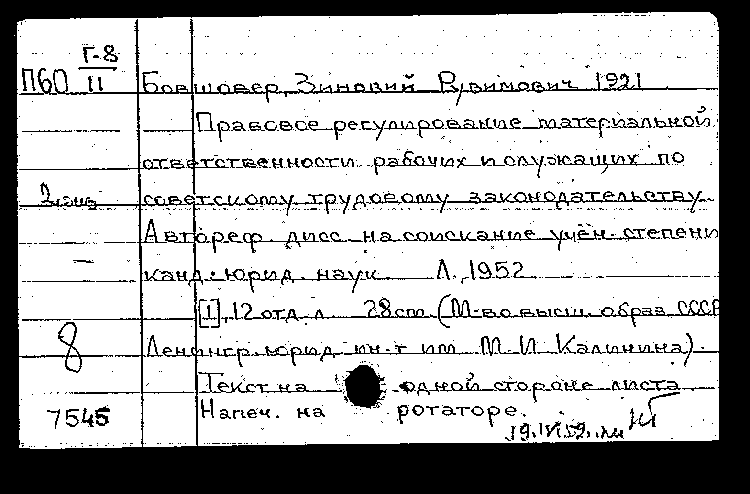 Г-8
П60 II Бовшовер, Зиновий Рувимович 1921
Правовое регулирование материальной
ответственности рабочих и служащих по
2 экз советскому трудовому законодательству.
Автореф. дисс. на соискание учён. степени
канд. юрид. наук Л. 1952
[1], 12 отд. л. 28 cm. (М-во высш. образ. СССР
8 Ленингр. юрид. ин-т им. М. И. Калинина).
Текст на одной стороне листа.
7545 Напеч. на ротаторе.